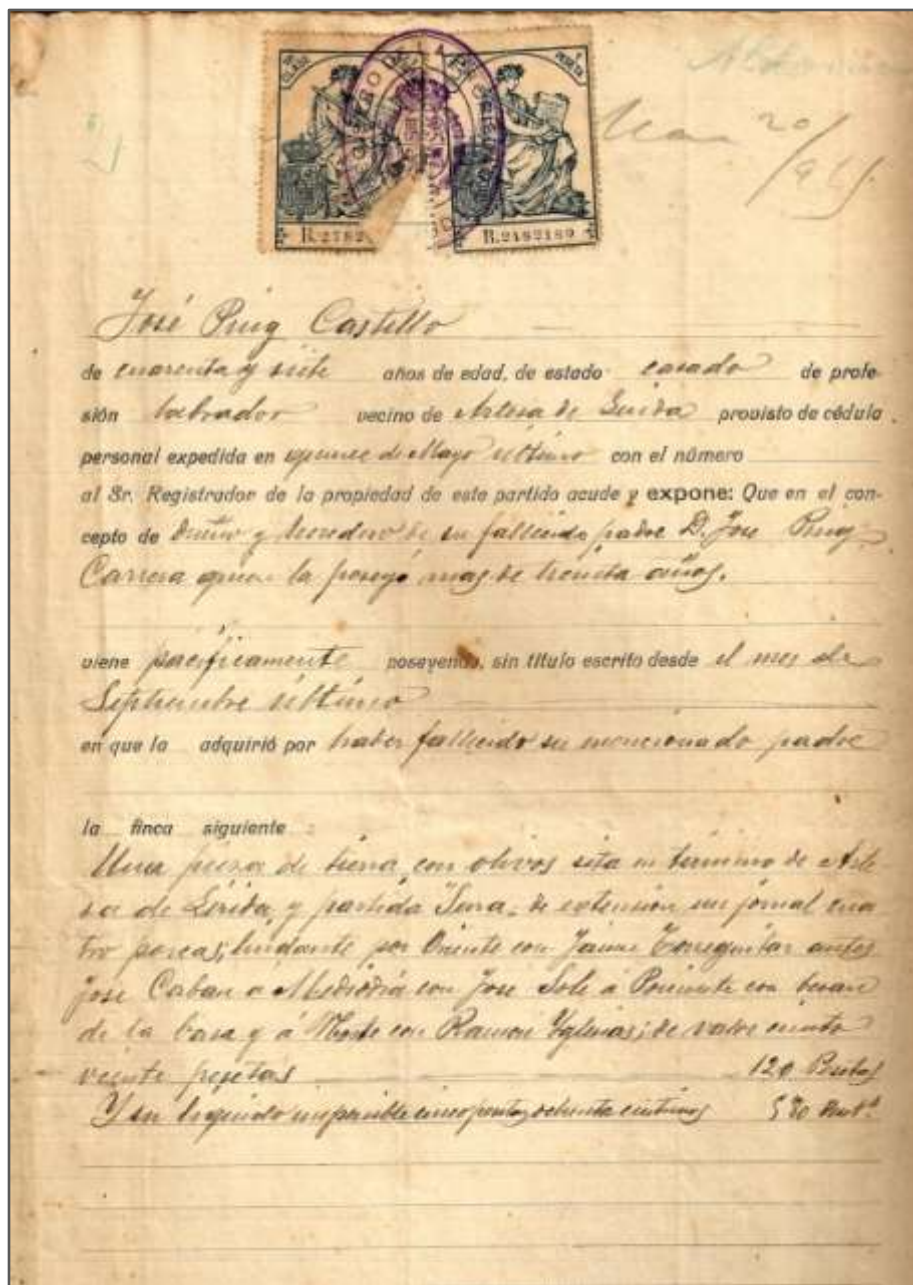 REGISTRO DE LA
R.2782
R.2182189
20
José Puig Castillo
de cuarenta y siete años de edad, de estado casado de profe-
sión labrador vecino de Artesa de Lerida provisto de cédula
personal expedida en quince de Mayo ultimo con el número
al Sr. Registrador de la propiedad de este partido acude y expone: Que en el con-
cepto de dueño y heredero de su fallecido padre D. Jose Puig
Carrera quien la poseyó mas de treinta años.
viene pacificamente poseyendo, sin título escrito desde el mes de
Septiembre ultimo
en que la adquirió por haber fallecido su mencionado padre
la finca siguiente :
Una pieza de tierra, con olivos sita en término de Arte-
sa de Lérida, y partida de extensión un jornal cua
tro porcas; lindante por Oriente con Jaime antes
Jose a Mediodia con Jose Solé a Poniente con
de la y á Norte con Ramon Yglesias; de valor ciento
veinte pesetas 120
Y su liquido imponible cinco ochenta centimos 5 80